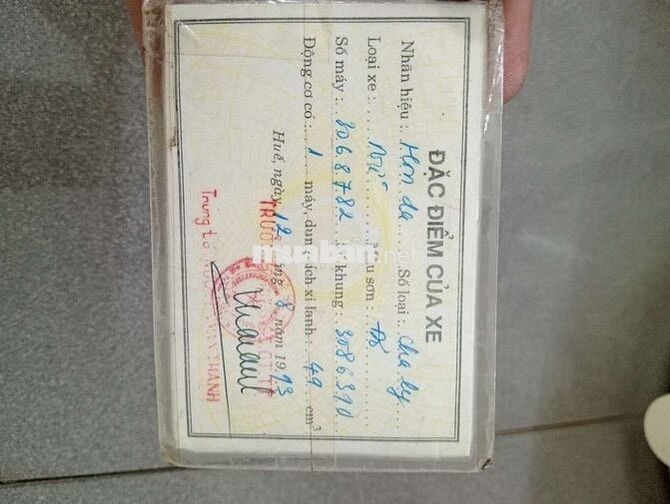 ĐẶC ĐIỂM CỦA XE
Nhãn hiệu : Hon da Số loại : Chaly
Loại xe : Nữ Màu sơn : Đỏ
Số máy : 3068782 khung : 3086390
Động cơ có : 1 máy, dung tích xi lanh : 49 cm³
Huế, ngày 12 tháng 8 năm 1993
TRƯỞ
Trung tá THANH
muaban.net